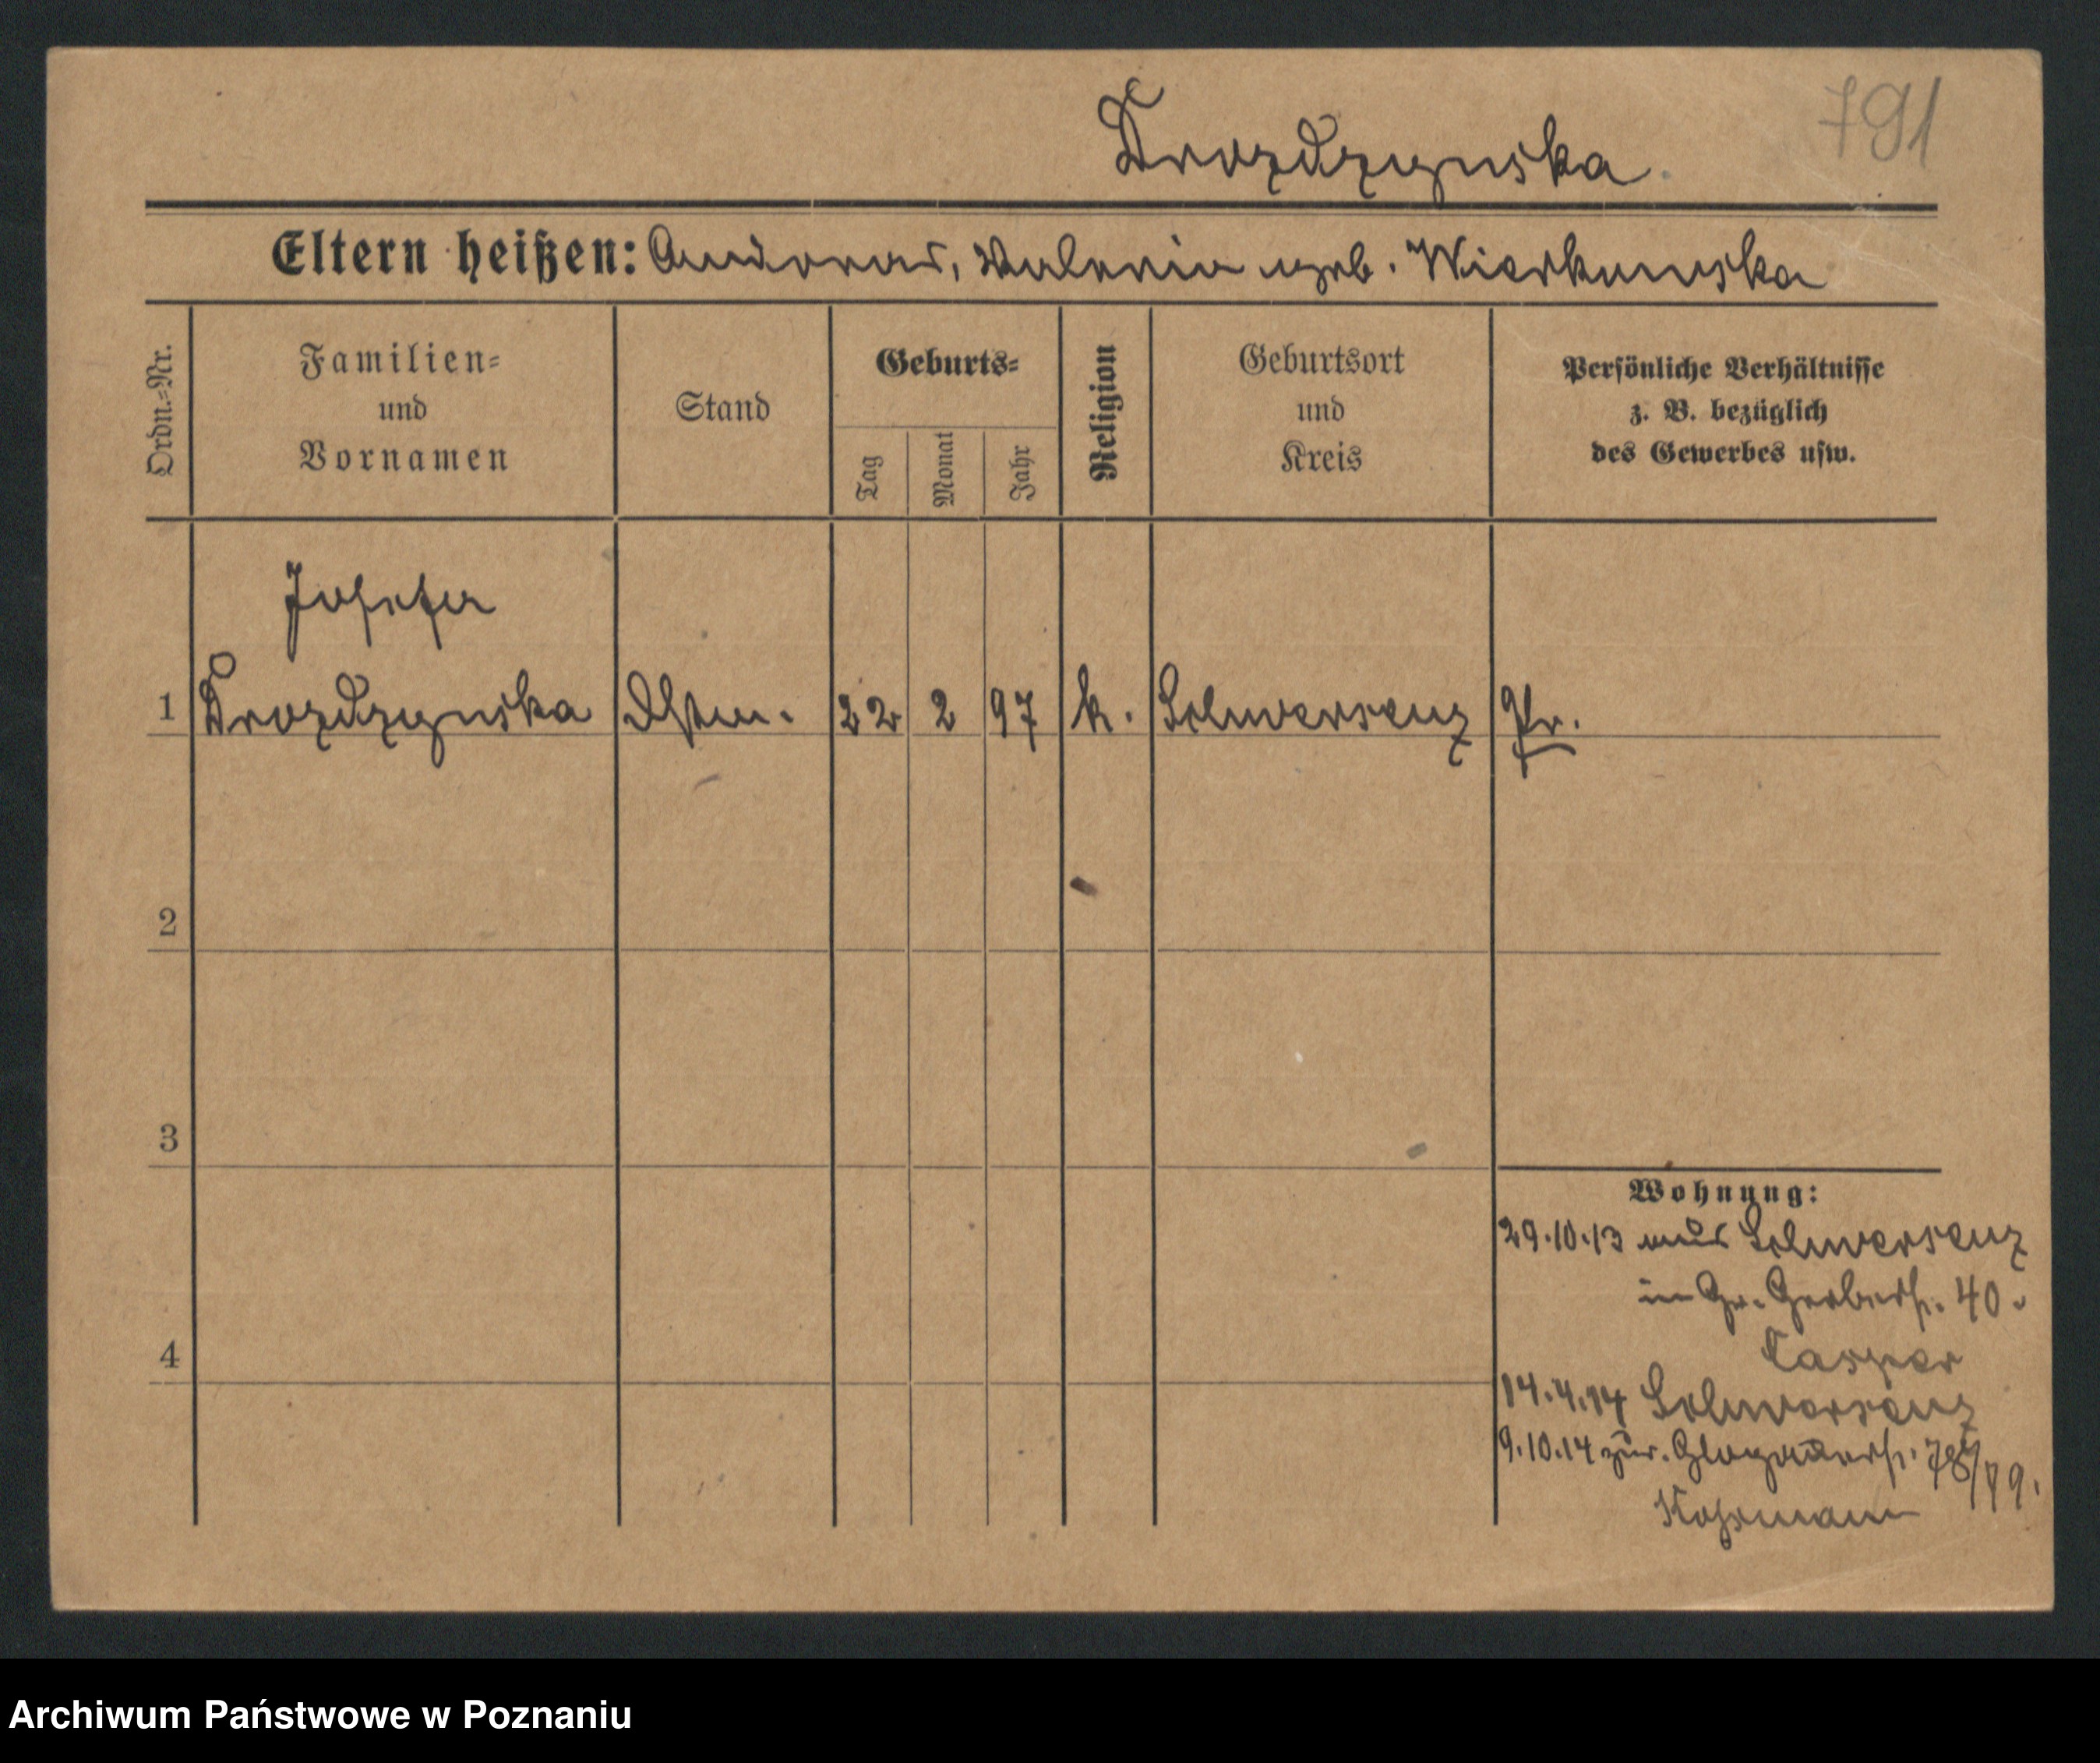 791
Drozdzynska
Eltern heißen: Andreas, Valeria geb. Wierkunska
Ordn.-Nr.
Familien-
und
Vornamen
Stand
Geburts-
Tag
Monat
Jahr
Religion
Geburtsort
und
Kreis
Persönliche Verhältnisse
z. B. bezüglich
des Gewerbes usw.
Josefa
1 Drozdzynska Dstm. 22 2 97 k. Schwersenz Pr.
2
3
Wohnung:
29.10.13 aus Schwersenz
in Gr. Gerberstr. 40.
Casper
4
14.4.14 Schwersenz
9.10.14 zur. Glogauerstr. 78/79.
Kossmann
Archiwum Państwowe w Poznaniu